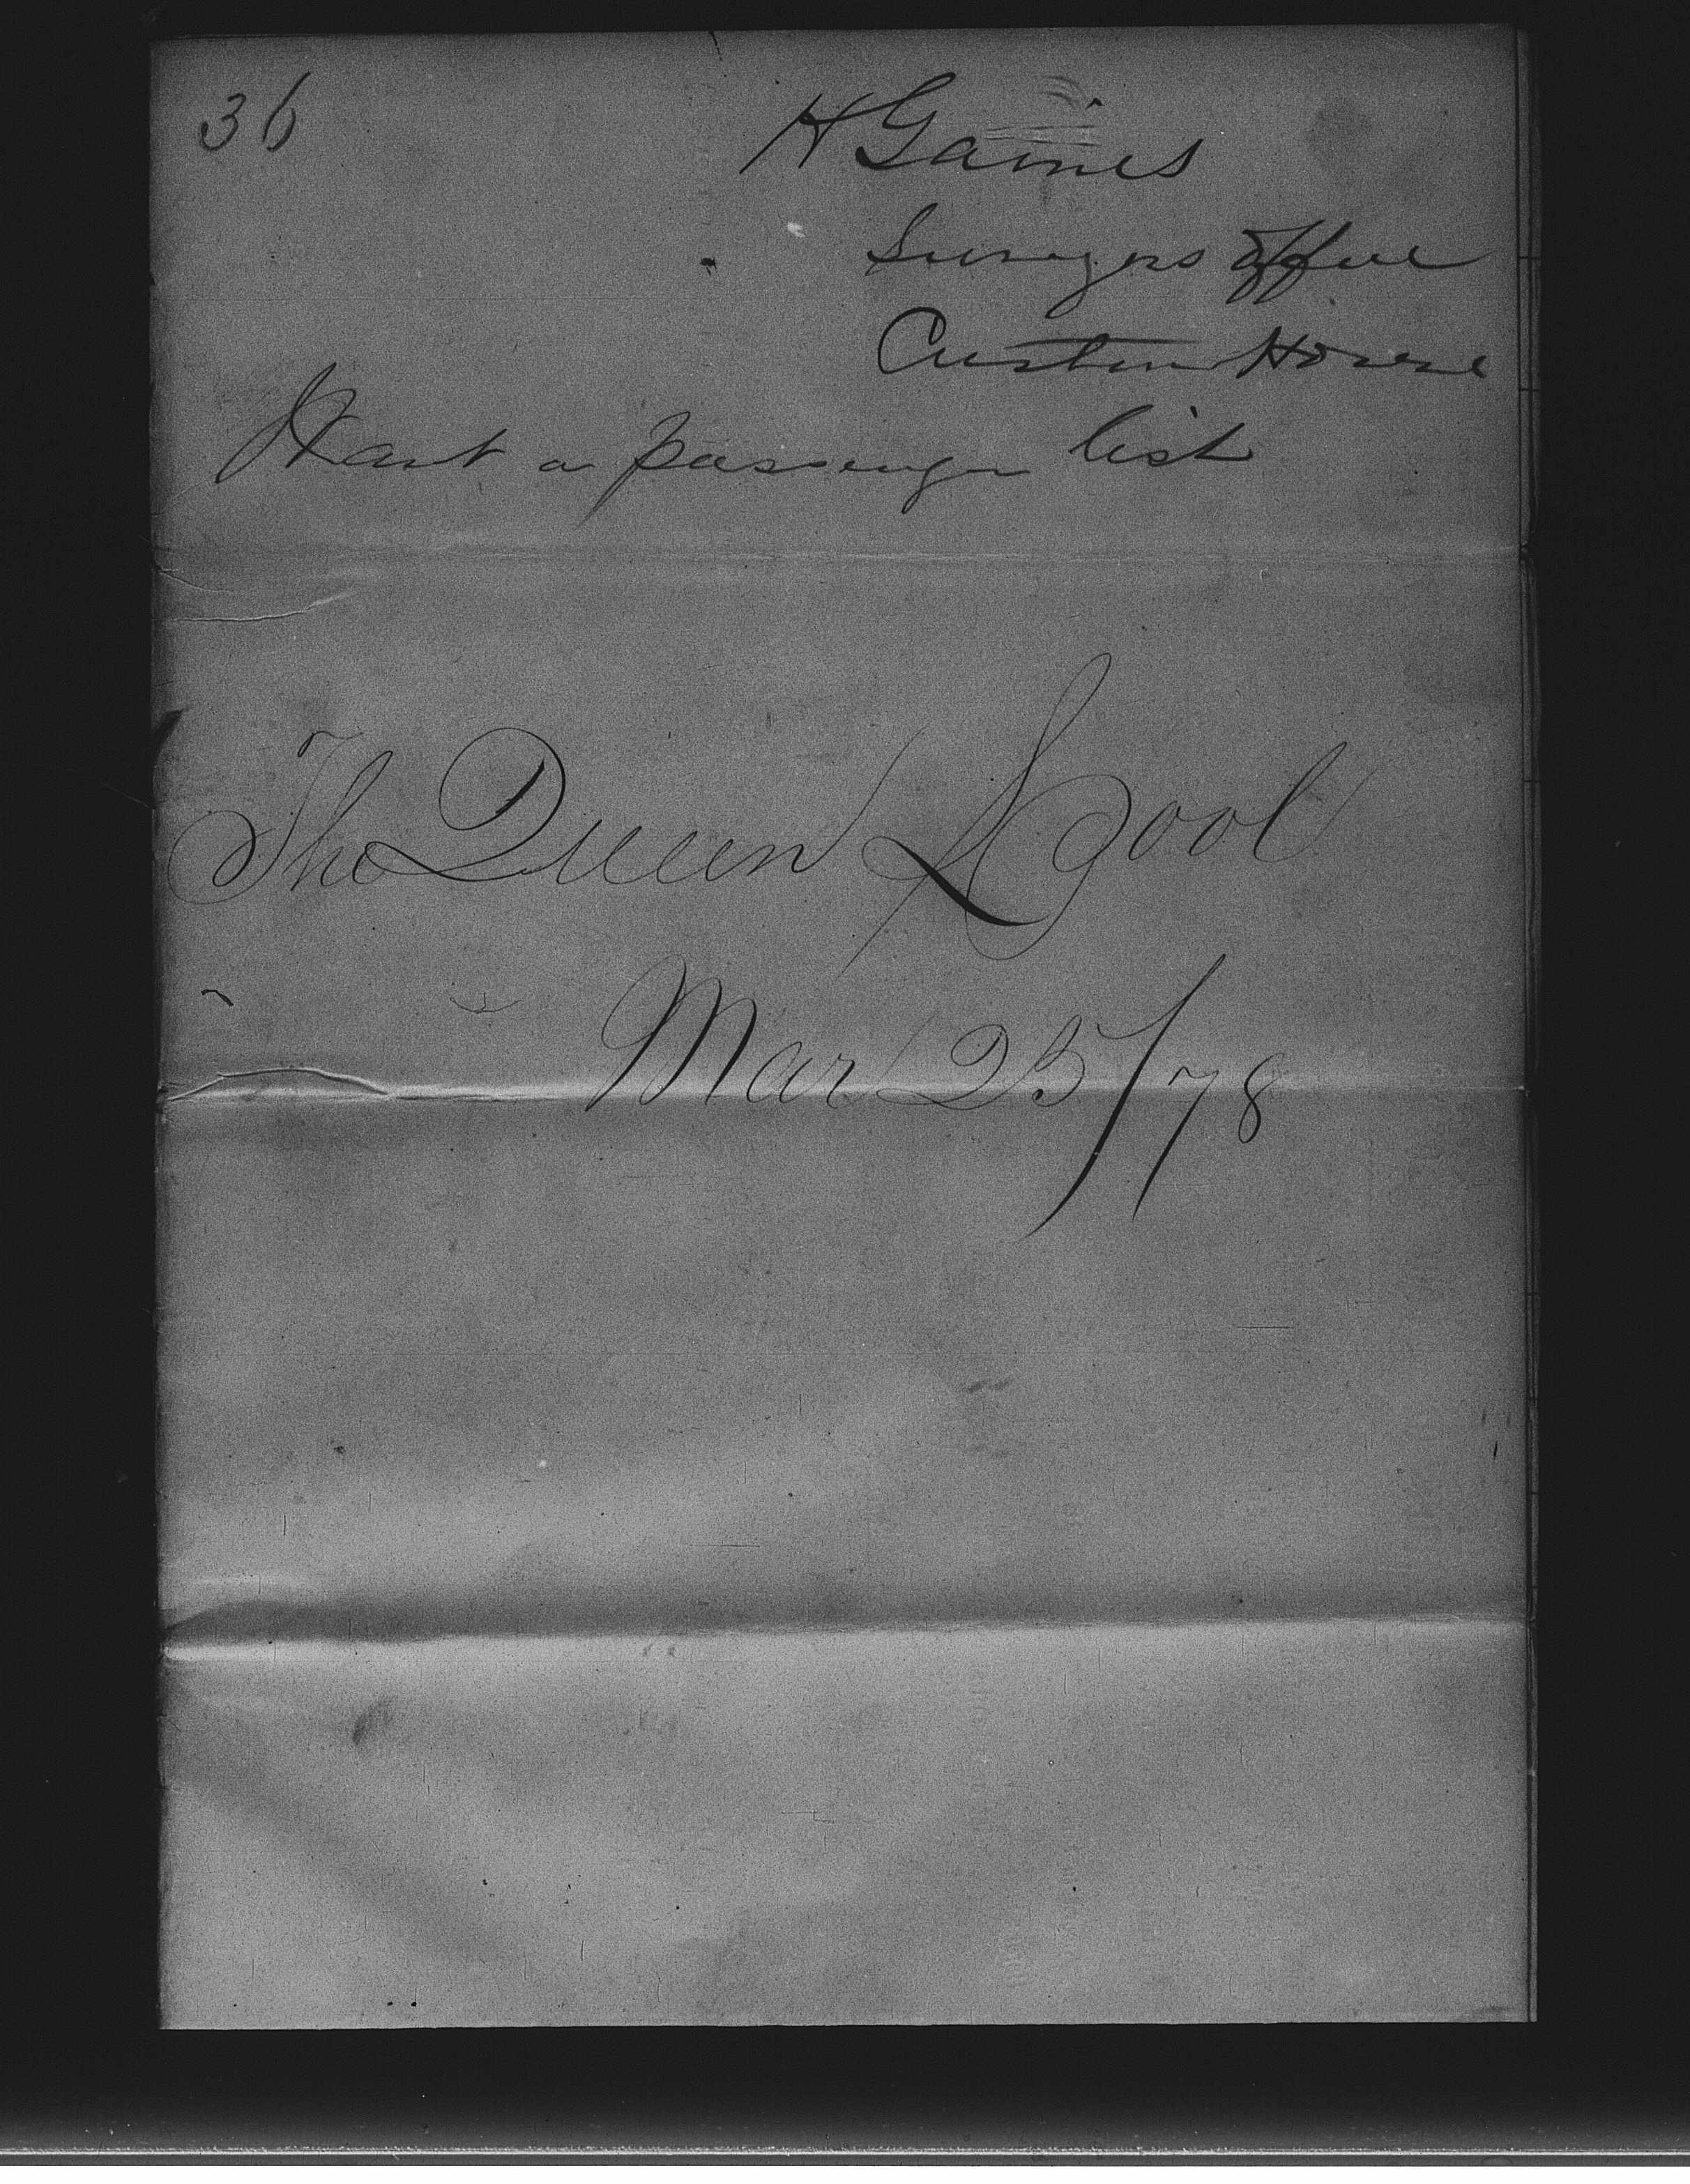 36
H Gaines
Surveyors Office
Custom House
Want a passenger list
The Queen L'pool
Mar 25/78